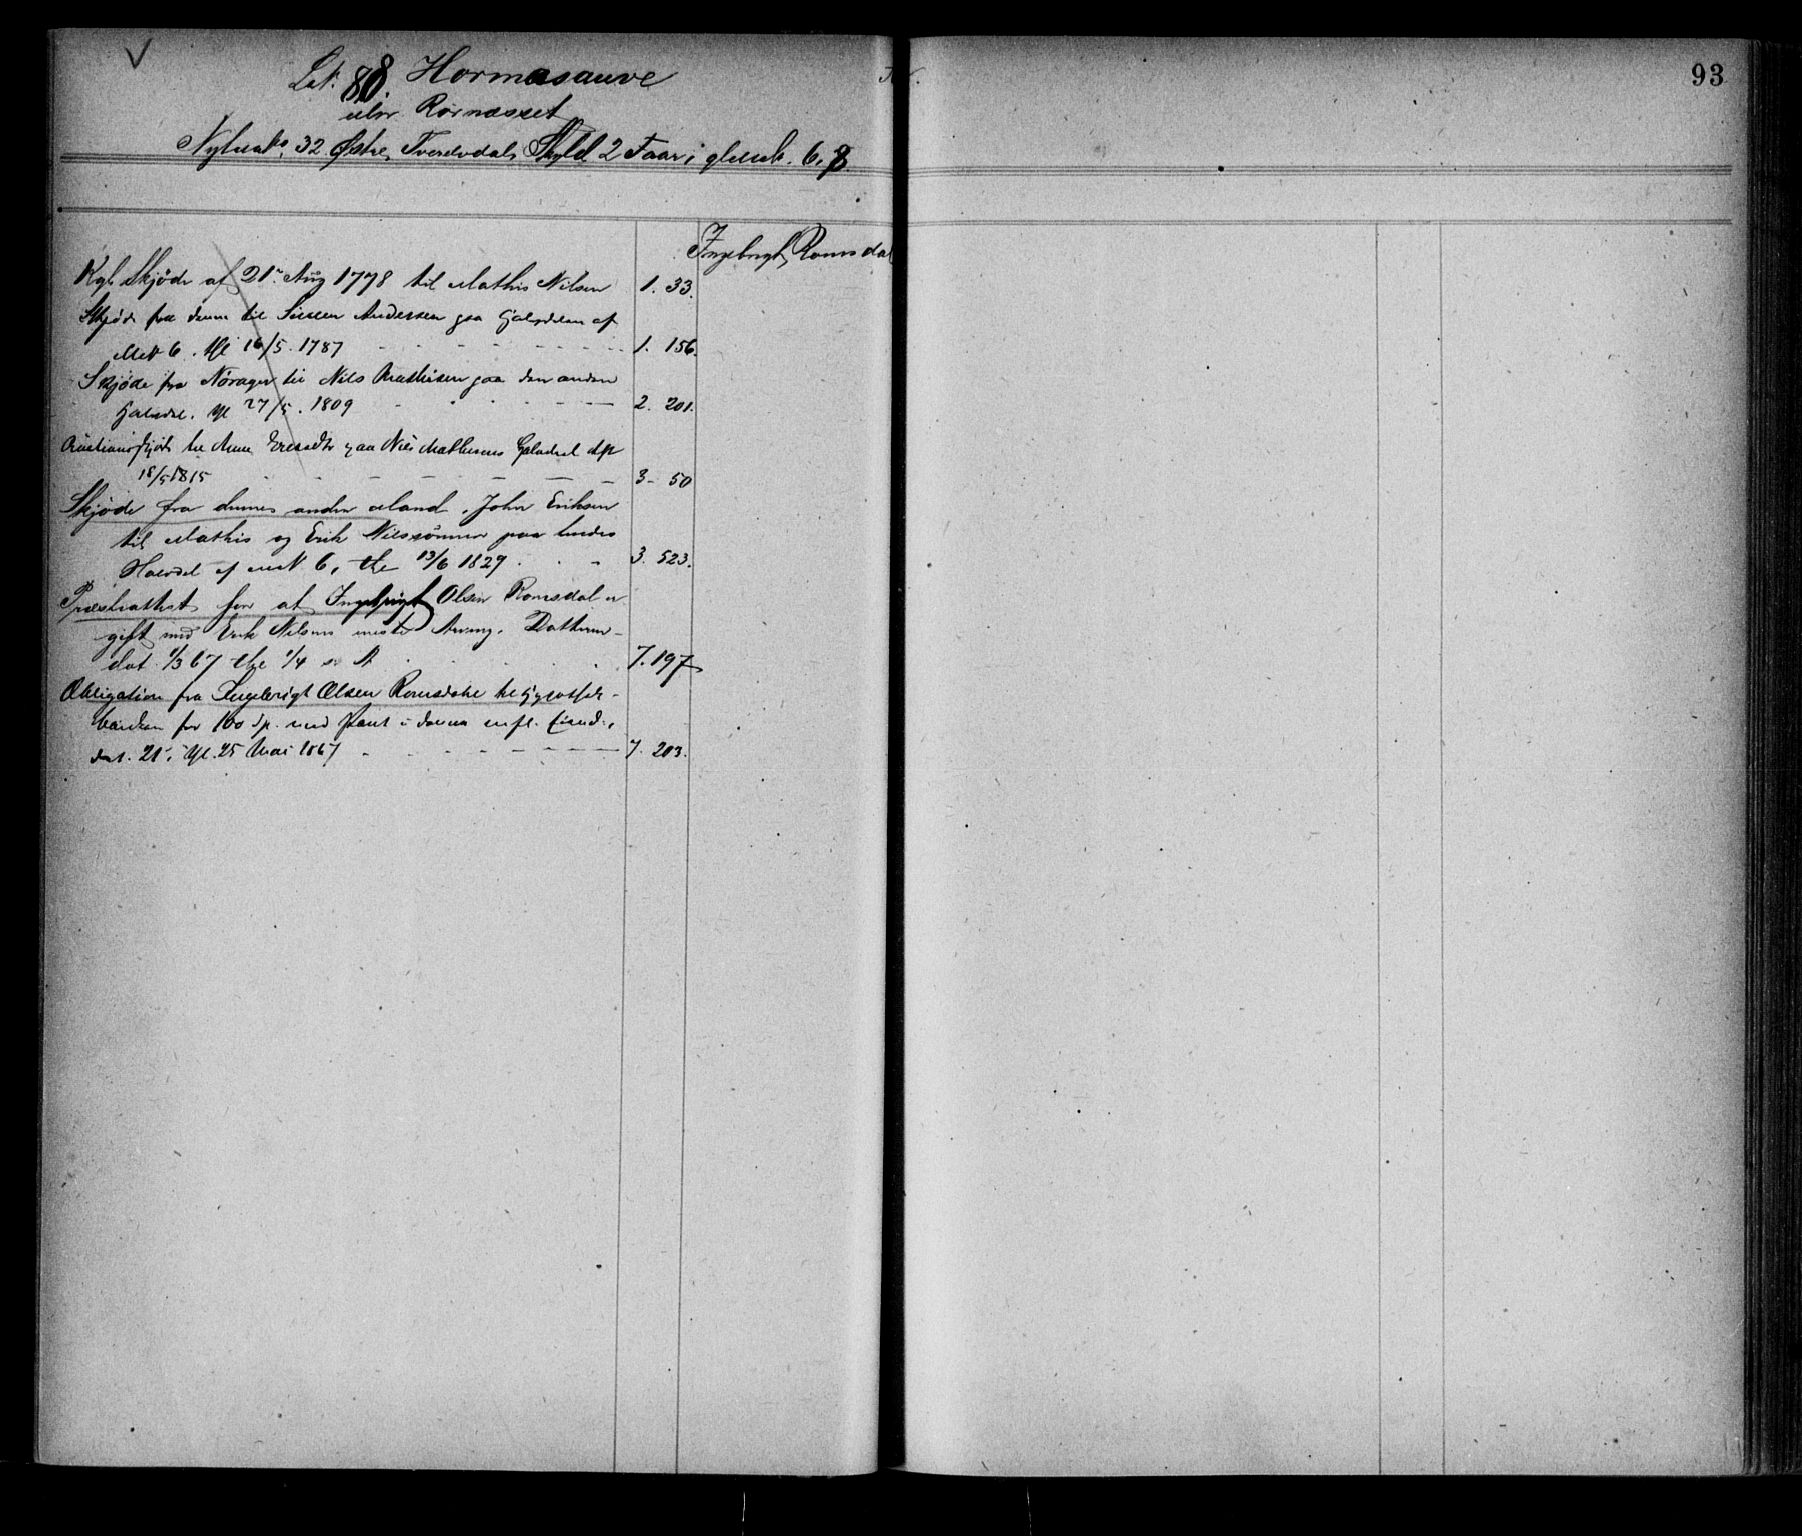 93
Let. 88. Hormasauve
eller Rörnæsset
Nybrak 32 Østre Tverelvdal, Skyld 2 Faar i gl. 6. 8.
Ingebrigt Romsdal
Kgl. Skjöde af 21. Aug 1778 til Mathis Nilsen 1. 33.
Skjöde fra denne til Simen Andersen paa Halvdelen af
Mat 6. tgl 16/5. 1787 - - - - - - - 1. 156.
Skjöde fra Nörager til Nils Mathisen paa den anden
Halvdel. tgl 27/5. 1809 - - - - - - 2. 201.
Auktionsskjöde til Anne Ericsdtr paa Nils Mathisens Halvdel
18/5 1815 - - - - - - - 3 - 50
Skjöde fra dennes anden Mand, John Eriksen
til Mathis og Erik Nilssönner paa hendes
Halvdel af mat N 6, the 13/6 1829 . . - 3. 523.
Præsteattest for at Ingebrigt Olsen Romsdal er
gift med Erik Nilsens eneste Arving, Datteren -
dat. 1/3 67 the 1/4 s. A. . . . . . 7. 197
Obligation fra Ingebrigt Olsen Romsdal til Hypothek-
banken for 100 Sp. med Pant i denne Eiend.,
dat. 21, tgl. 25 Mai 1867 - - - - - - - 7. 203.